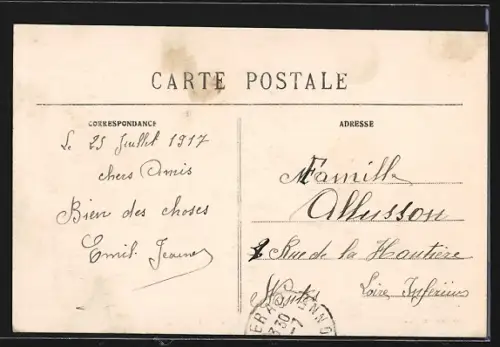 CARTE POSTALE
CORRESPONDANCE
Le 25 Juillet 1917
chers Amis
Bien des choses
Emil. Jeanne
ADRESSE
Famille
Allusson
Rue de la Hautière
Nantes
Loire Inférieure